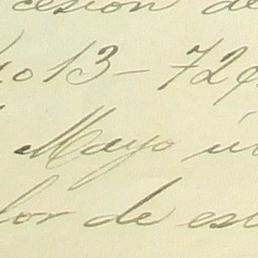 cesion de
13-72
Mayo
or de est